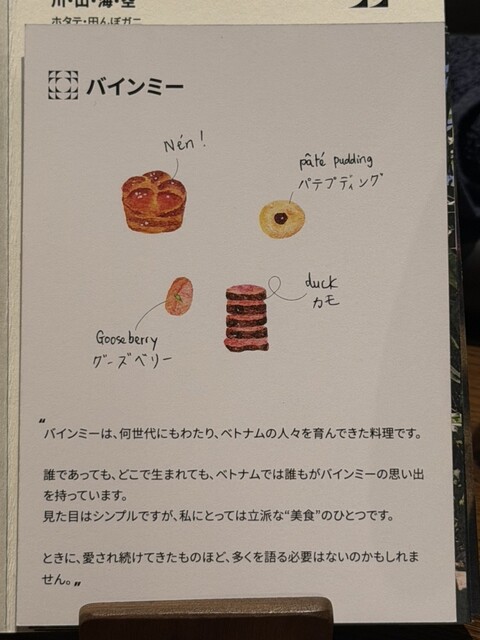 川・山・海・空
ホタテ・田んぼガニ
バインミー
Nén!
pâté pudding
パテプディング
duck
カモ
Gooseberry
グーズベリー
“
バインミーは、何世代にもわたり、ベトナムの人々を育んできた料理です。
誰であっても、どこで生まれても、ベトナムでは誰もがバインミーの思い出
を持っています。
見た目はシンプルですが、私にとっては立派な“美食”のひとつです。
ときに、愛され続けてきたものほど、多くを語る必要はないのかもしれま
せん。”